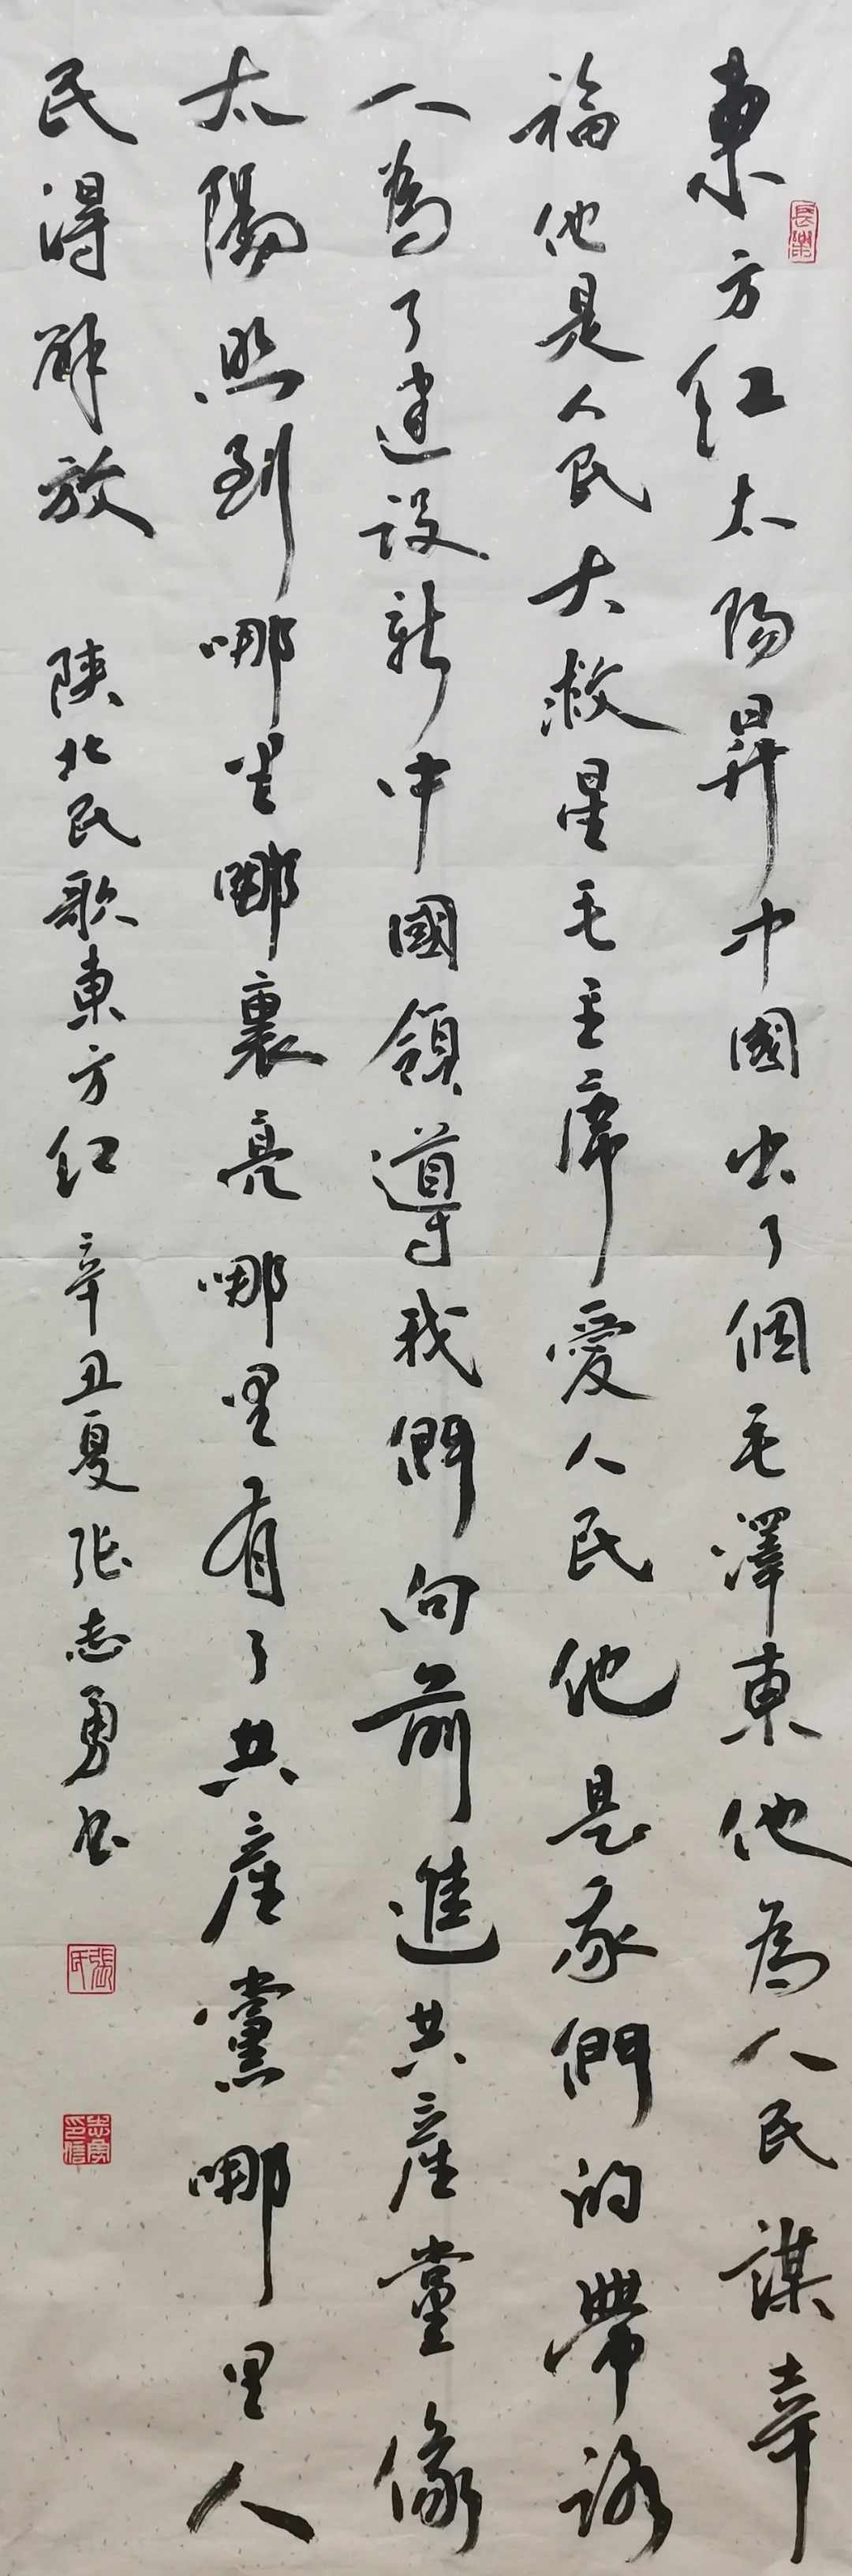 東方红太陽昇中國出了個毛澤東他為人民謀幸
福他是人民大救星毛主席愛人民他是我們的帶路
人為了建設新中國領導我們向前進共産黨像
太陽照到哪里哪裏亮哪里有了共産黨哪里人
民得解放 陝北民歌東方红 辛丑夏張志勇书
長樂
張氏
志勇印信